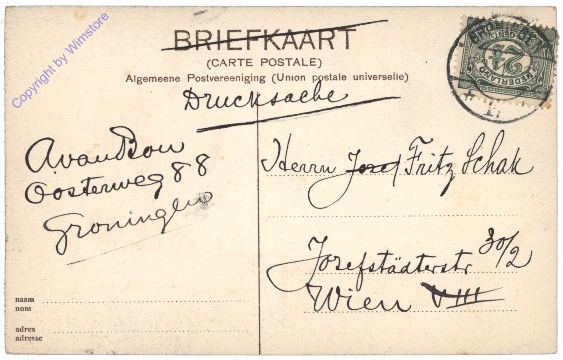 BRIEFKAART
(CARTE POSTALE)
Algemeene Postvereeniging (Union postale universelle)
Drucksache
GRONINGEN
NEDERLAND
2½
A van Bou
Oosterweg 88
Groningen
Herrn Josef Fritz Schak
Josefstädterstr 30/2
Wien VIII
naam
nom
adres
adresse
Copyright by Wimstore